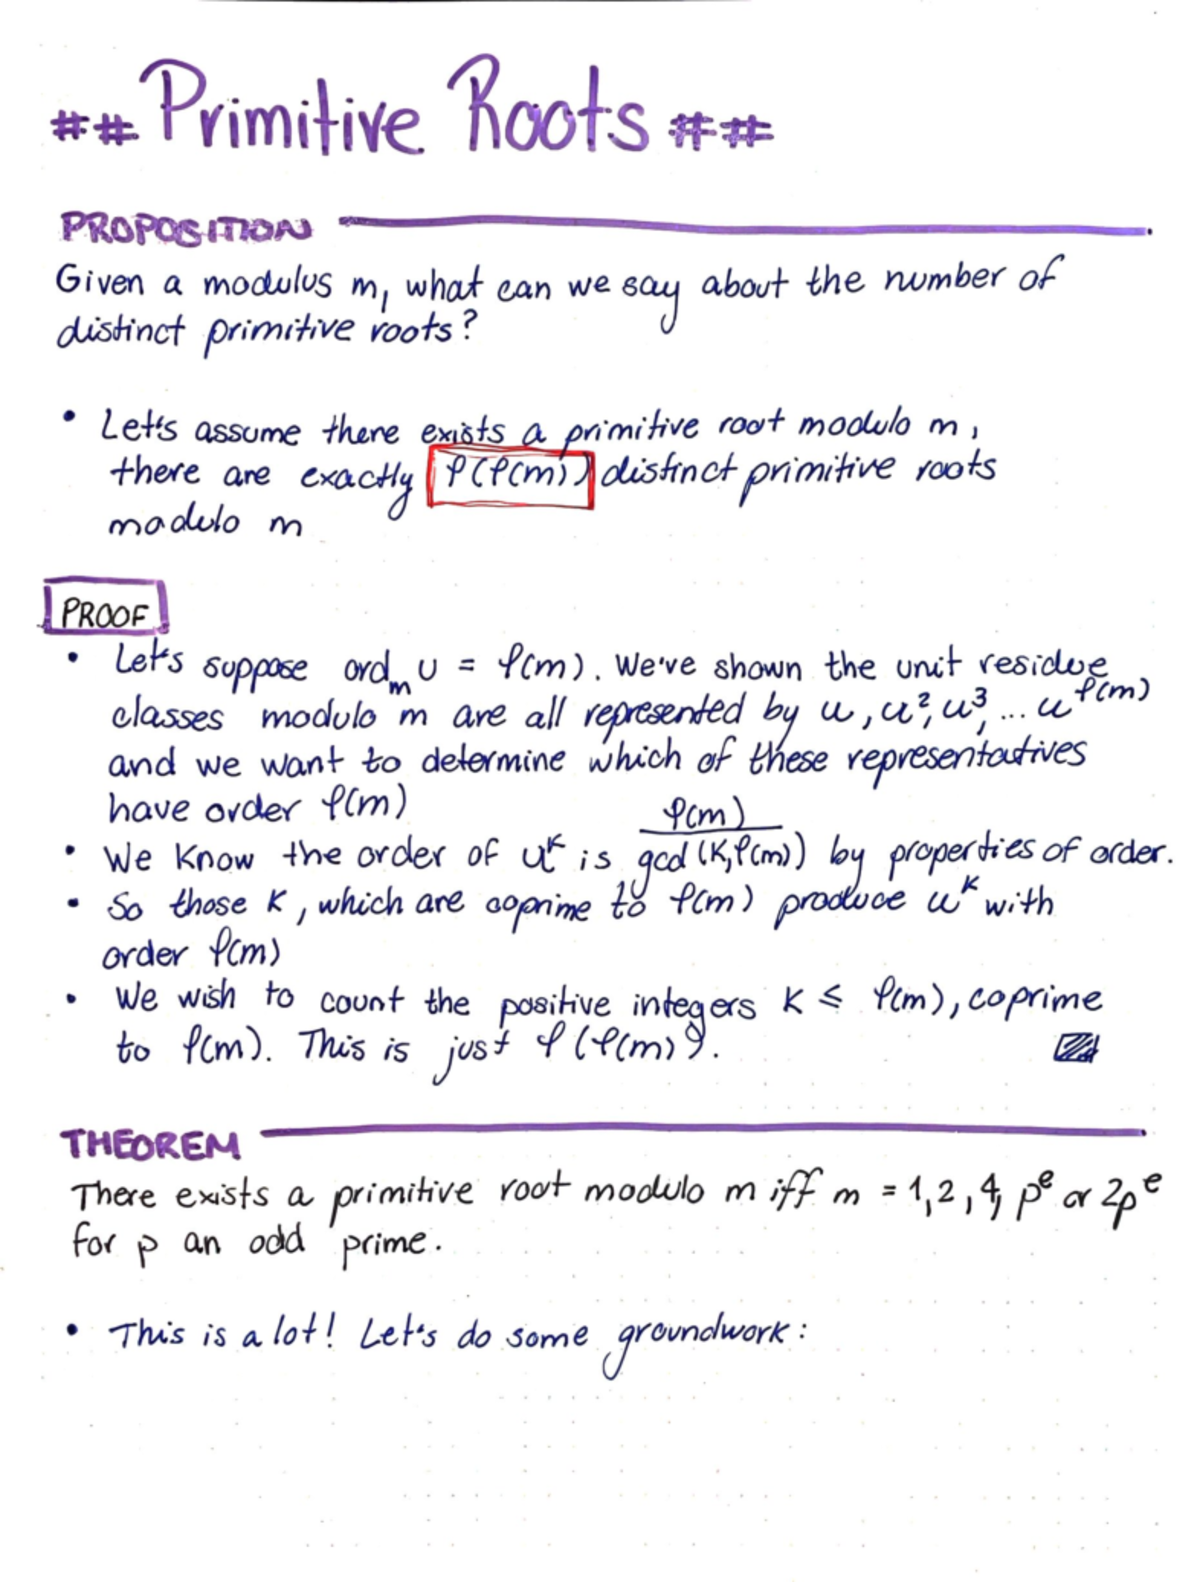 ## Primitive Roots ##
PROPOSITION
Given a modulus m, what can we say about the number of
distinct primitive roots?
• Let's assume there exists a primitive root modulo m,
there are exactly φ(φ(m)) distinct primitive roots
modulo m
PROOF
• Let's suppose ordₘ u = φ(m). We've shown the unit residue
classes modulo m are all represented by u, u², u³, ... u^φ(m)
and we want to determine which of these representatives
have order φ(m)
• We know the order of u^k is φ(m)/gcd(k,φ(m)) by properties of order.
• So those k, which are coprime to φ(m) produce u^k with
order φ(m)
• We wish to count the positive integers k ≤ φ(m), coprime
to φ(m). This is just φ(φ(m)).
THEOREM
There exists a primitive root modulo m iff m = 1,2,4, p^e or 2p^e
for p an odd prime.
• This is a lot! Let's do some groundwork: